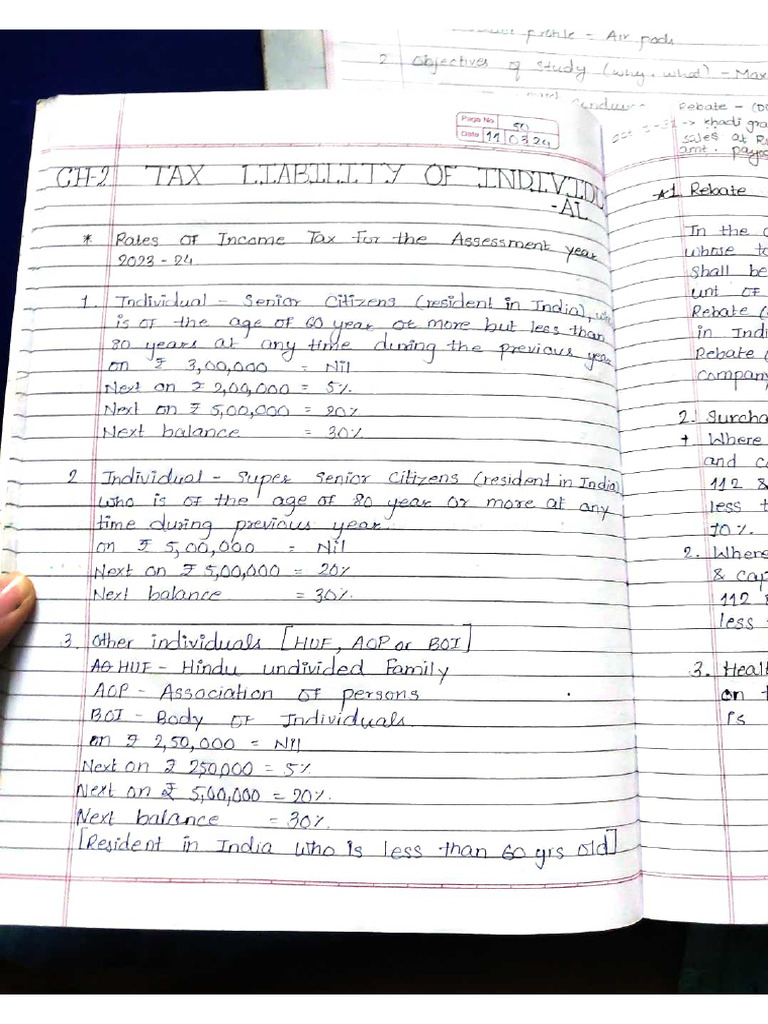 profile - Air pods
2 Objectives of study (why, what) - Max
Page No
Date 11 03 24
CH-2 TAX LIABILITY OF INDIVIDU
-AL
* Rates of Income Tax for the Assessment year
2023-24
1. Individual - Senior Citizens (resident in India), who
is of the age of 60 year or more but less than
80 years at any time during the previous year
on ₹ 3,00,000 = Nil
Next on ₹ 2,00,000 = 5%
Next on ₹ 5,00,000 = 20%
Next balance = 30%
2 Individual - Super Senior Citizens (resident in India)
who is of the age of 80 year or more at any
time during previous year.
on ₹ 5,00,000 = Nil
Next on ₹ 5,00,000 = 20%
Next balance = 30%.
3. Other individuals [HUF, AOP or BOI]
HUF - Hindu undivided Family
AOP - Association of persons
BOI - Body of Individuals
on ₹ 2,50,000 = Nil
Next on ₹ 250,000 = 5%
Next on ₹ 5,00,000 = 20%
Next balance = 30%
[Resident in India who is less than 60 yrs old]
Rebate -
-> khadi gra
sales at R
amt. payo
*1 Rebate
In the c
whose to
shall be
unt of
Rebate (
in Indi
Rebate (
company
2. Surcha
+ Where
and ca
112 &
less t
10%.
2. Where
& cap
112 &
less t
3. Healt
on t
is